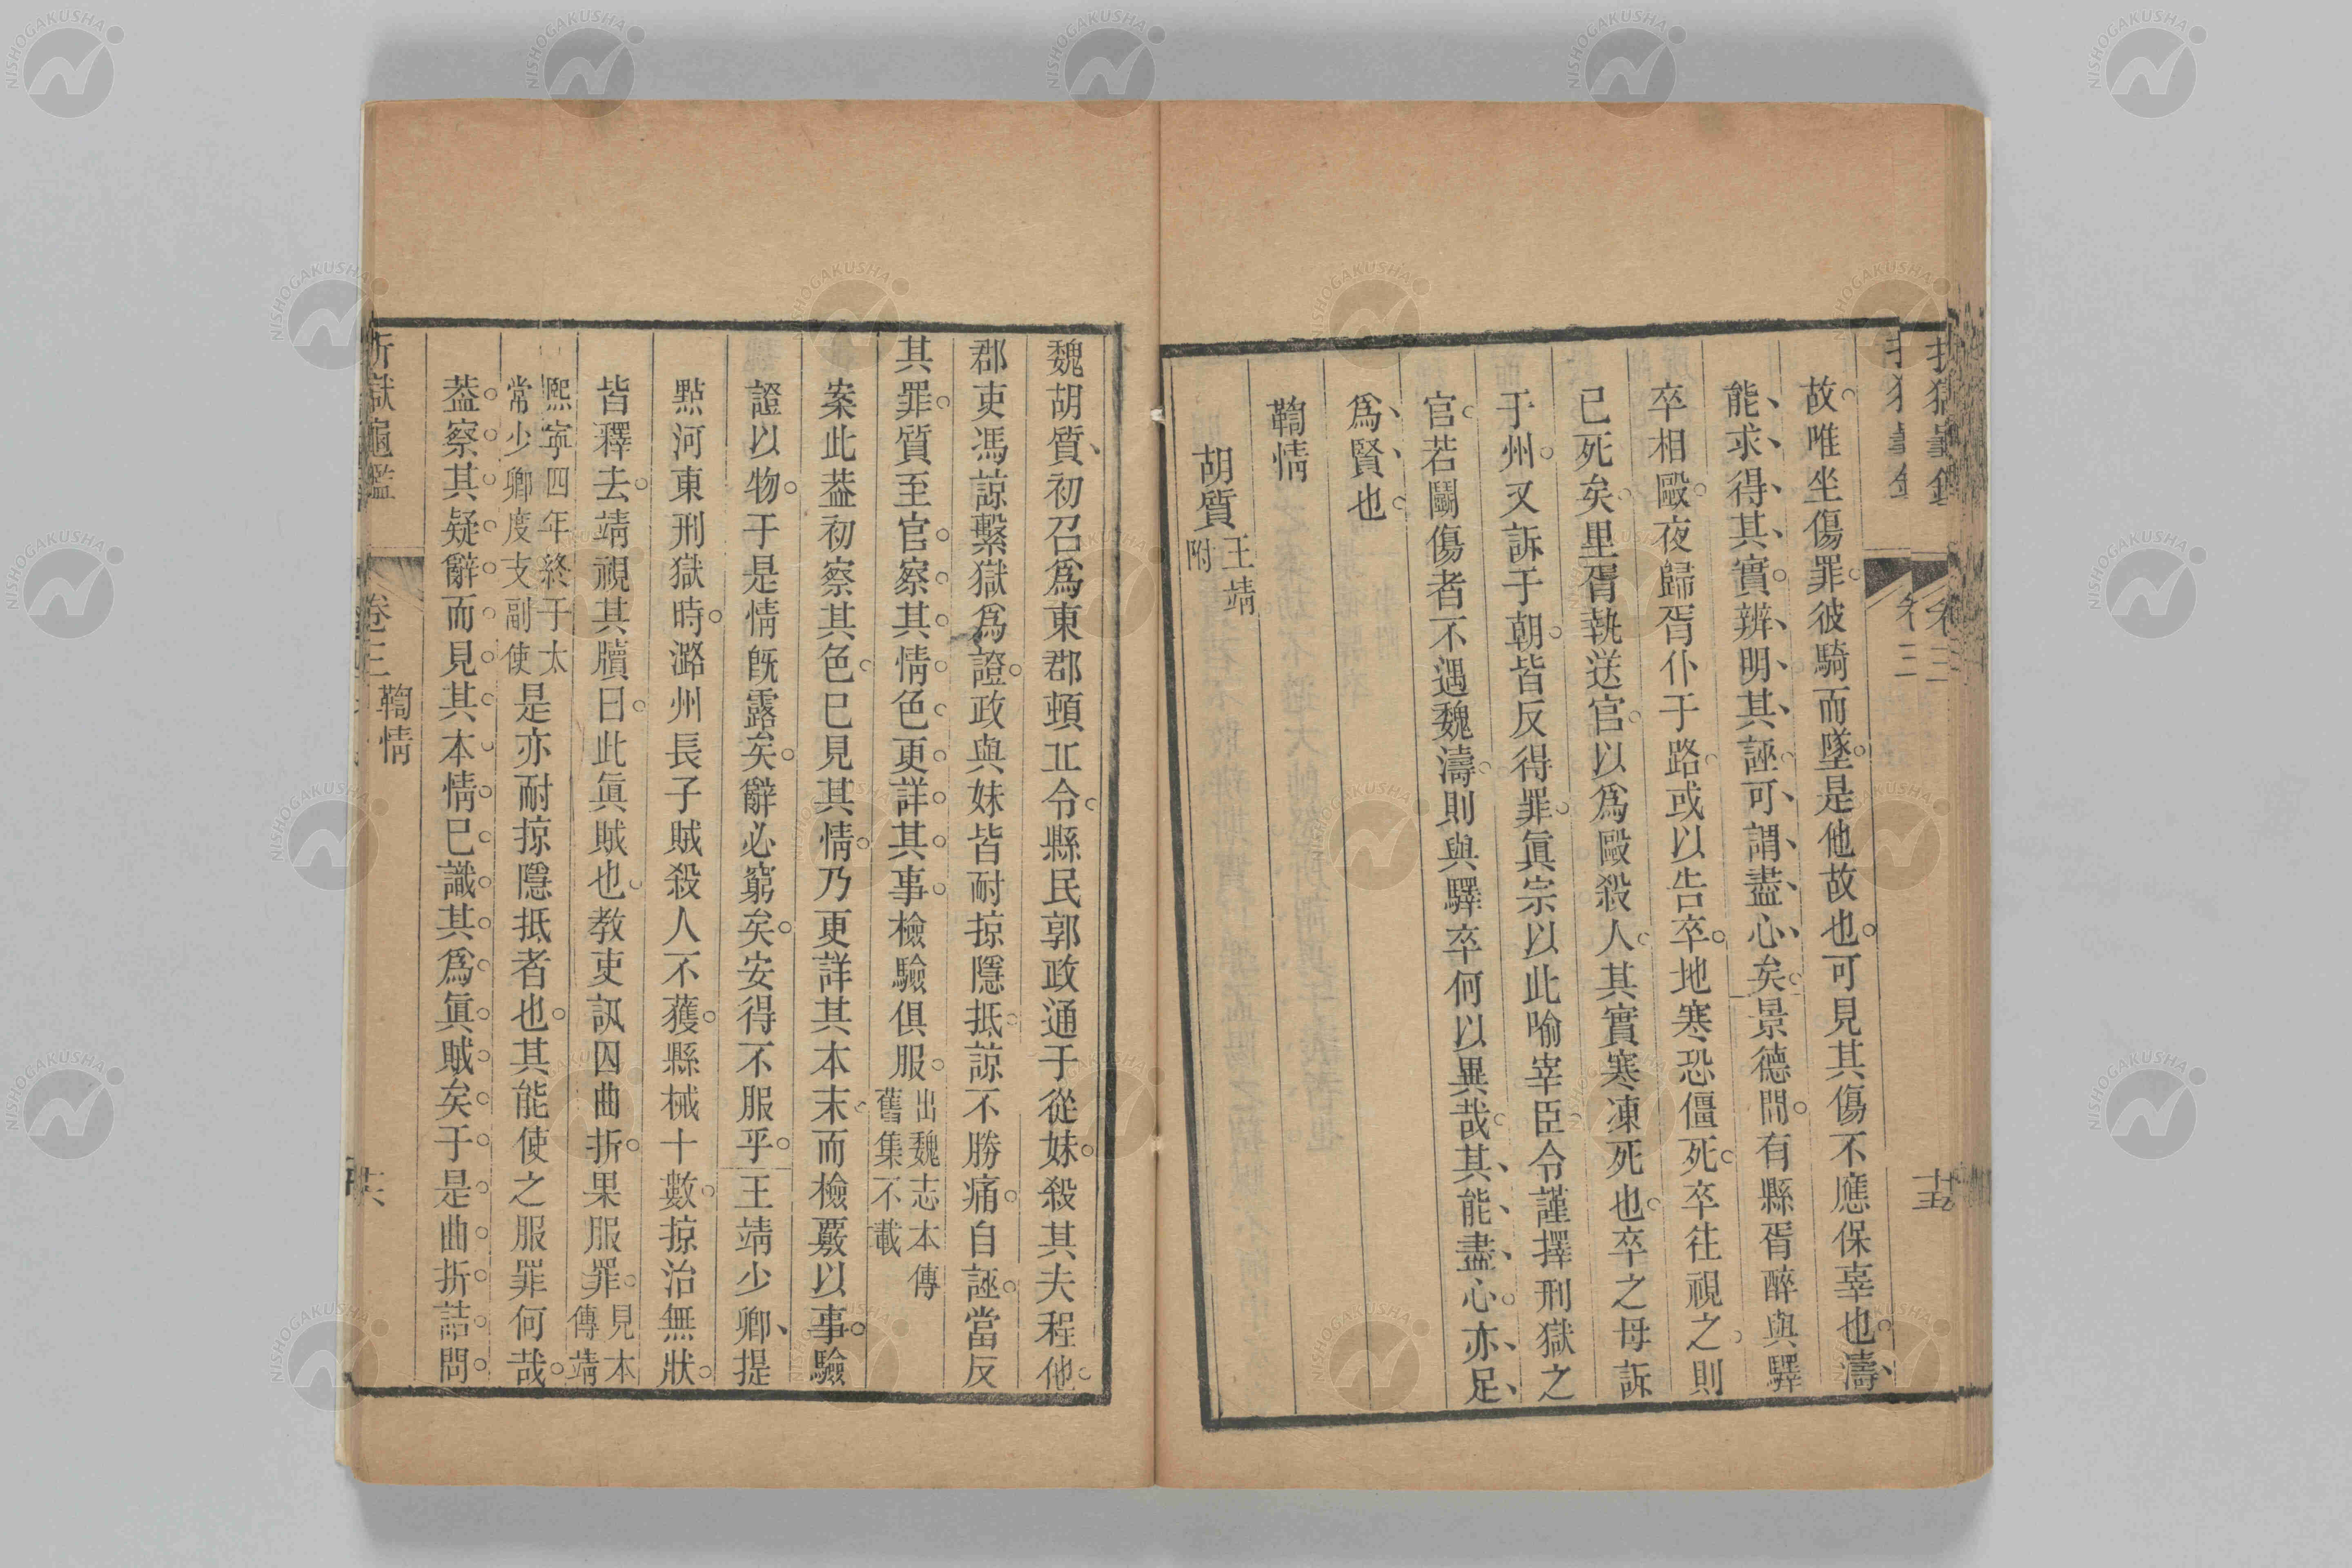 故唯坐傷罪彼騎而墜是他故也可見其傷不應保辜也濤
能求得其實辨明其誣可謂盡心矣景德間有縣胥醉與驛
卒相毆夜歸胥仆于路或以告卒地寒恐僵死卒往視之則
已死矣里胥執送官以爲毆殺人其實寒凍死也卒之母訴
于州又訴于朝皆反得罪眞宗以此喻宰臣令謹擇刑獄之
官若鬭傷者不遇魏濤則與驛卒何以異哉其能盡心亦足
爲賢也
鞫情
胡質王靖附
魏胡質初召爲東郡頓丘令縣民郭政通于從妹殺其夫程他
郡吏馮諒繫獄爲證政與妹皆耐掠隱抵諒不勝痛自誣當反
其罪質至官察其情色更詳其事檢驗俱服出魏志本傳舊集不載
案此葢初察其色已見其情乃更詳其本末而檢覈以事驗
證以物于是情旣露矣辭必窮矣安得不服乎王靖少卿提
點河東刑獄時潞州長子賊殺人不獲縣械十數掠治無狀
皆釋去靖視其牘曰此眞賊也教吏訊囚曲折果服罪見本傳靖
熙寧四年終于太常少卿度支副使是亦耐掠隱抵者也其能使之服罪何哉
葢察其疑辭而見其本情已識其爲眞賊矣于是曲折詰問
折獄龜鑑 卷三 鞫情
NISHOGAKUSHA